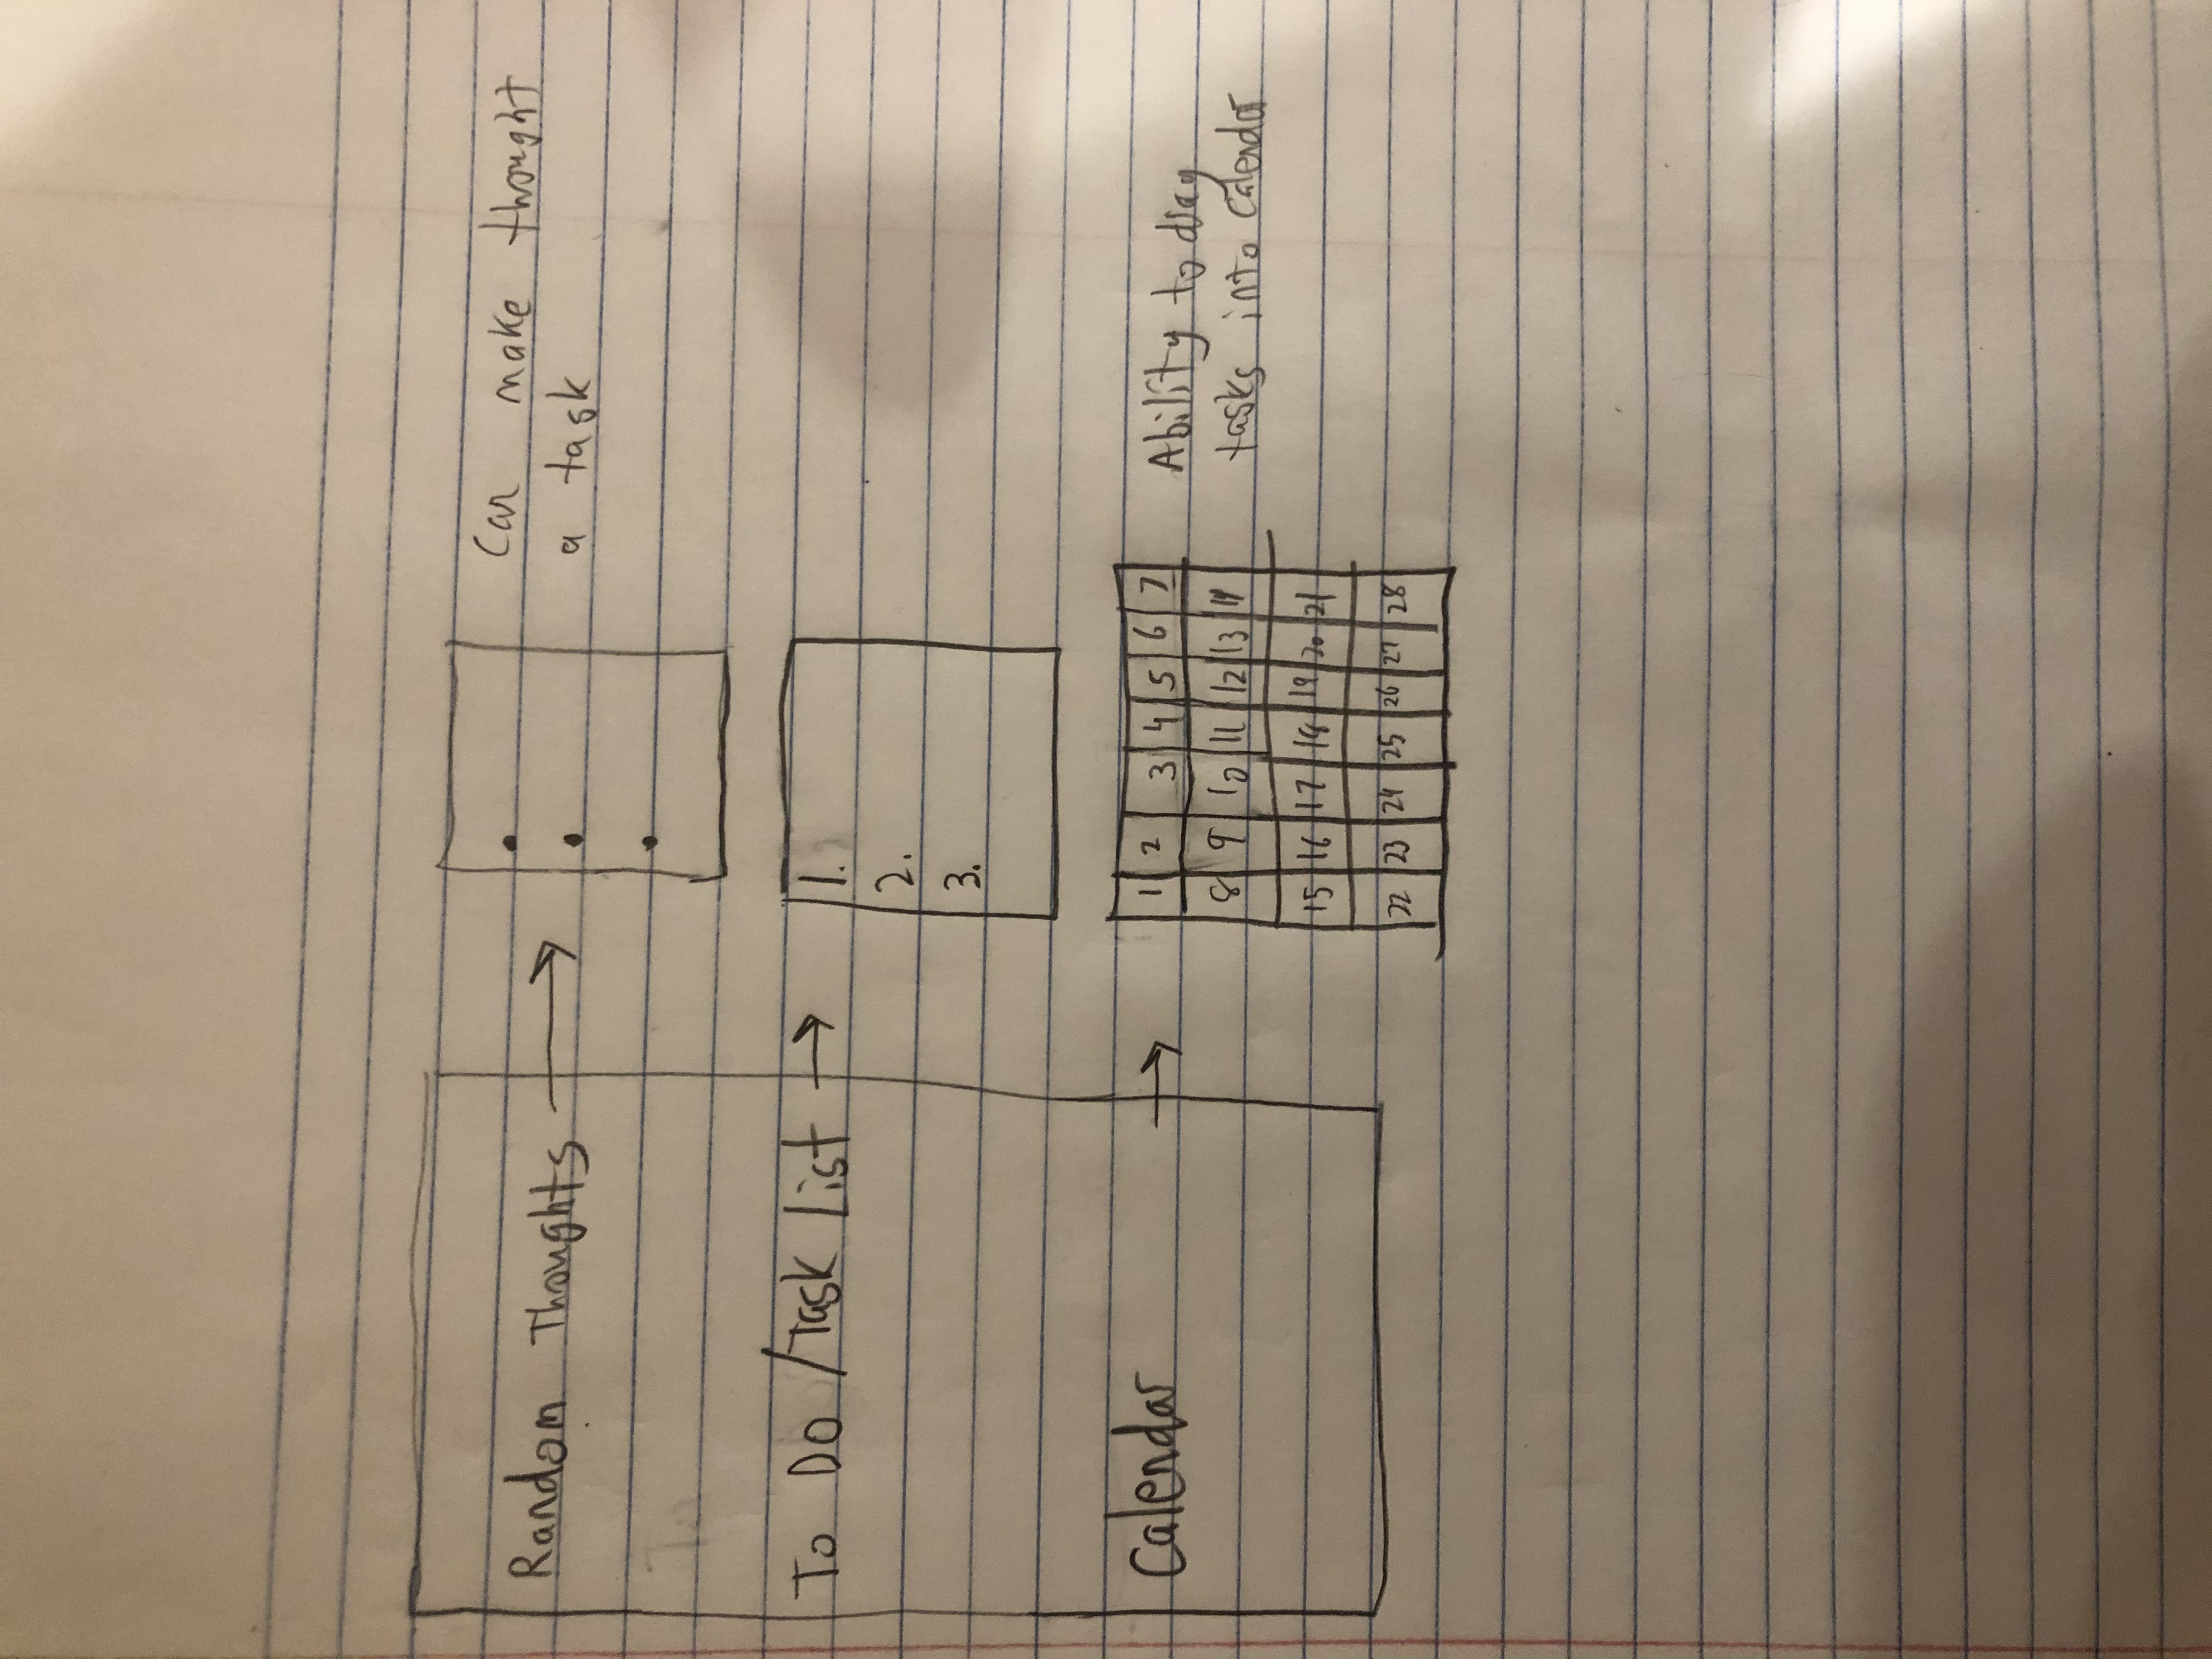 Random Thoughts →
•
•
•
Can make thought
a task
To Do / Task List →
1.
2.
3.
Calendar →
1 2 3 4 5 6 7
8 9 10 11 12 13 14
15 16 17 18 19 20 21
22 23 24 25 26 27 28
Ability to drag
tasks into Calendar